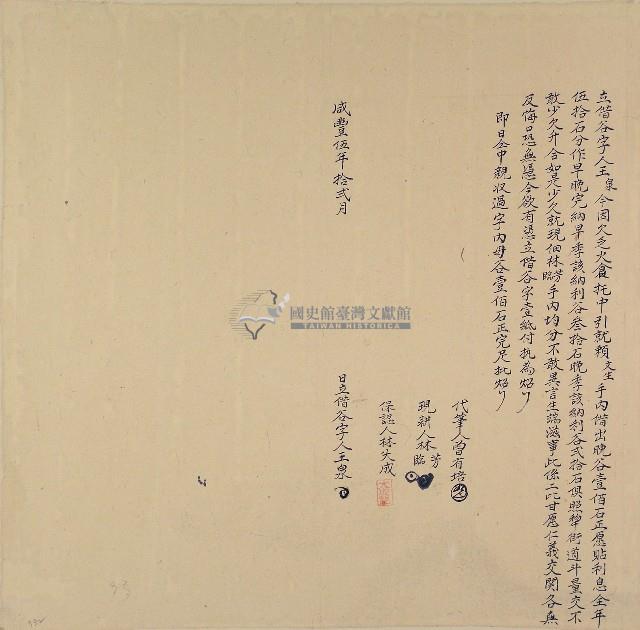 立借谷字人王泉今因欠乏火食托中引就賴文生手內借出晚谷壹佰石正愿貼利息全年
伍拾石分作早晚完納早季該納利谷叁拾石晚季該納利谷弍拾石俱照犂街道斗量交不
敢少欠升合如是少欠就現佃林芳臨手內均分不敢異言生端滋事此係二比甘愿仁義交關各無
反悔口恐無憑今欲有憑立借谷字壹紙付执為炤
即日仝中親收過字內母谷壹佰石正完足批炤
代筆人曾有培
現耕人林芳臨
保認人林大成
咸豐伍年拾弍月
日立借谷字人王泉
國史館臺灣文獻館
TAIWAN HISTORICA